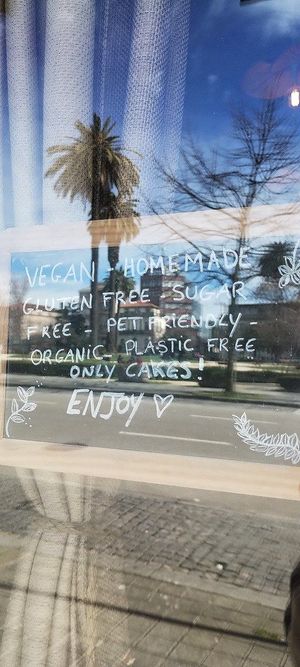 VEGAN - HOMEMADE
GLUTEN FREE SUGAR
FREE - PET FRIENDLY -
ORGANIC - PLASTIC FREE
ONLY CAKES!
ENJOY ♡